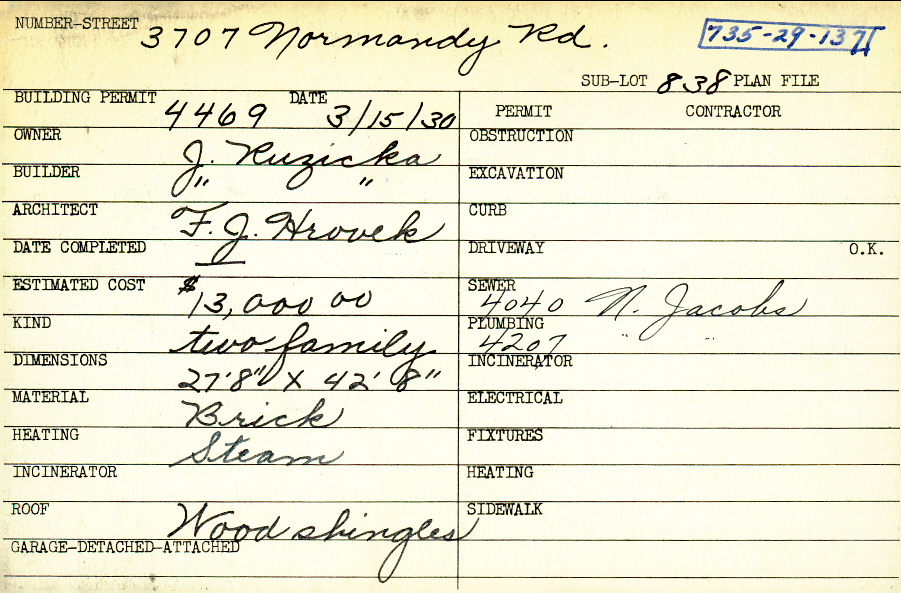 NUMBER-STREET 3707 Normandy Rd.
735-29-137
SUB-LOT 838 PLAN FILE
BUILDING PERMIT 4469 DATE 3/15/30
PERMIT CONTRACTOR
OWNER J. Ruzicka
OBSTRUCTION
BUILDER " "
EXCAVATION
ARCHITECT F. J. Hrovek
CURB
DATE COMPLETED
DRIVEWAY O.K.
ESTIMATED COST $13,000 00
SEWER 4040 N. Jacobs
KIND two family
PLUMBING 4207 " "
DIMENSIONS 27'8" X 42' 8"
INCINERATOR
MATERIAL Brick
ELECTRICAL
HEATING Steam
FIXTURES
INCINERATOR
HEATING
ROOF Wood shingles
SIDEWALK
GARAGE-DETACHED-ATTACHED